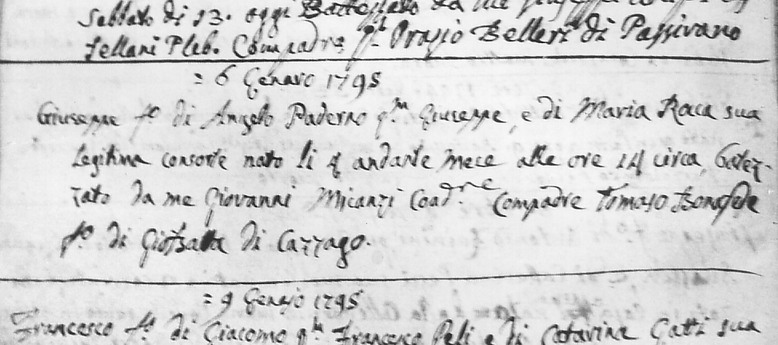 sabbato di 13. oggi Battezzato da me
sellani Pleb. Compadre qm Orazio Belleri di Passirano
= 6 Genaro 1795
Giuseppe fo di Angelo Paderno qm Giuseppe, e di Maria Raca sua
Legitima consorte nato li 4 andante mece alle ore 14 circa Batez-
zato da me Giovanni Micanzi Coadre Compadre Tomaso Bonafede
fo. di Giobatta di Cazzago.
= 9 Genajo 1795
Francesco fo di Giacomo qm Francesco Peli e di Catarina Gatti sua